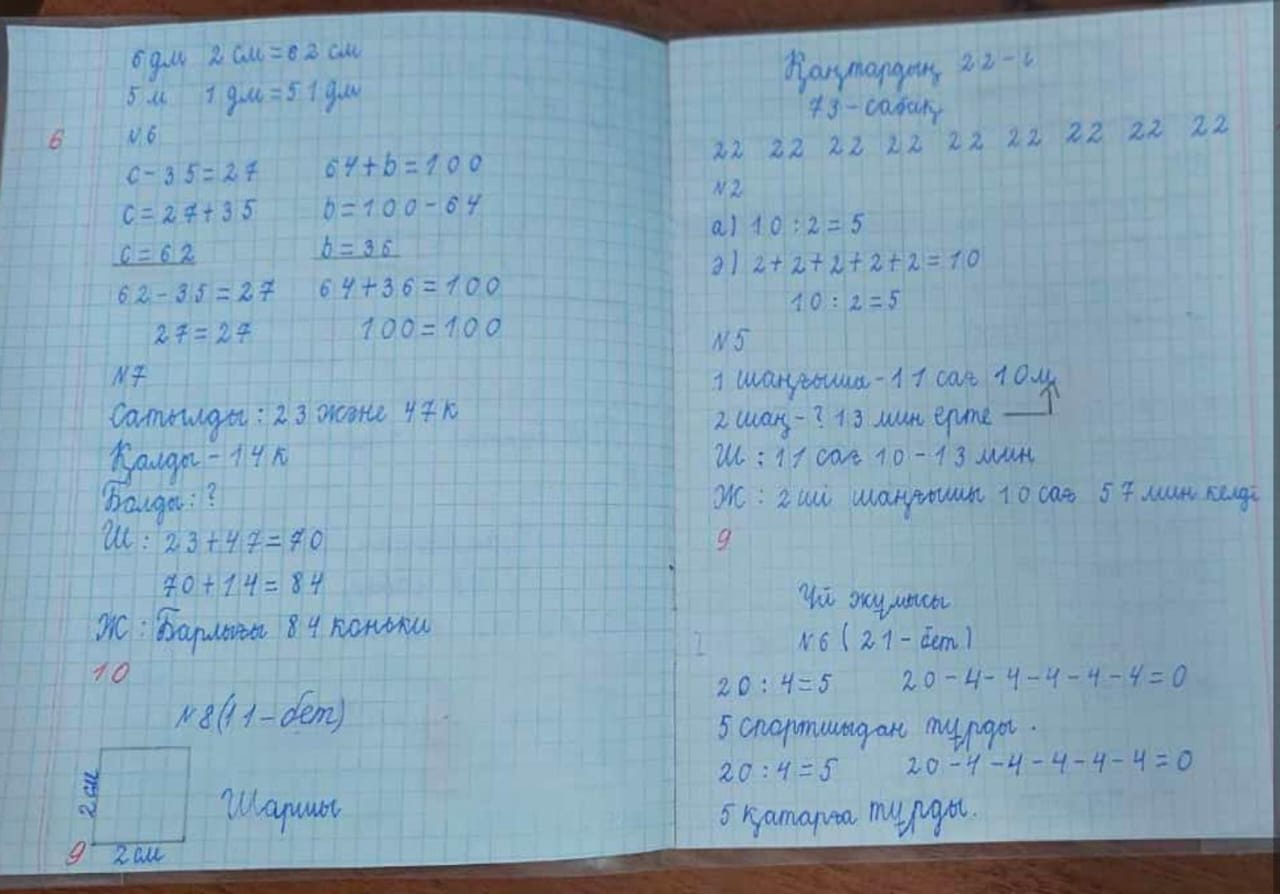 6 дм 2 см = 62 см
5 м 1 дм = 51 дм
6
№6
с - 35 = 27 64 + b = 100
с = 27 + 35 b = 100 - 64
с = 62 b = 36
62 - 35 = 27 64 + 36 = 100
27 = 27 100 = 100
№7
Сатылды : 23 және 47 к
Қалды - 14 к
Болды : ?
Ш : 23 + 47 = 70
70 + 14 = 84
Ж : Барлығы 84 коньки
10
№8 (11 - бет)
2 см
Шаршы
9
2 см
Қаңтардың 22 - і
73 - сабақ
22 22 22 22 22 22 22 22 22
№2
а) 10 : 2 = 5
ә) 2 + 2 + 2 + 2 + 2 = 10
10 : 2 = 5
№5
1 шаңғышы - 11 сағ 10 м
2 шаң - ? 13 мин ерте
Ш : 11 сағ 10 - 13 мин
Ж : 2 ші шаңғышы 10 сағ 57 мин келді
9
Үй жұмысы
№6 ( 21 - бет )
20 : 4 = 5 20 - 4 - 4 - 4 - 4 - 4 = 0
5 спортшыдан тұрды .
20 : 4 = 5 20 - 4 - 4 - 4 - 4 - 4 = 0
5 қатарға тұрды.